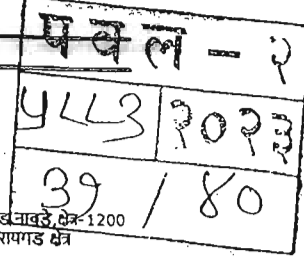 पवल - २
५८८३ २०२३
३९ / ४०
ड नावडे,क्षेत्र-1200
रायगड क्षेत्र